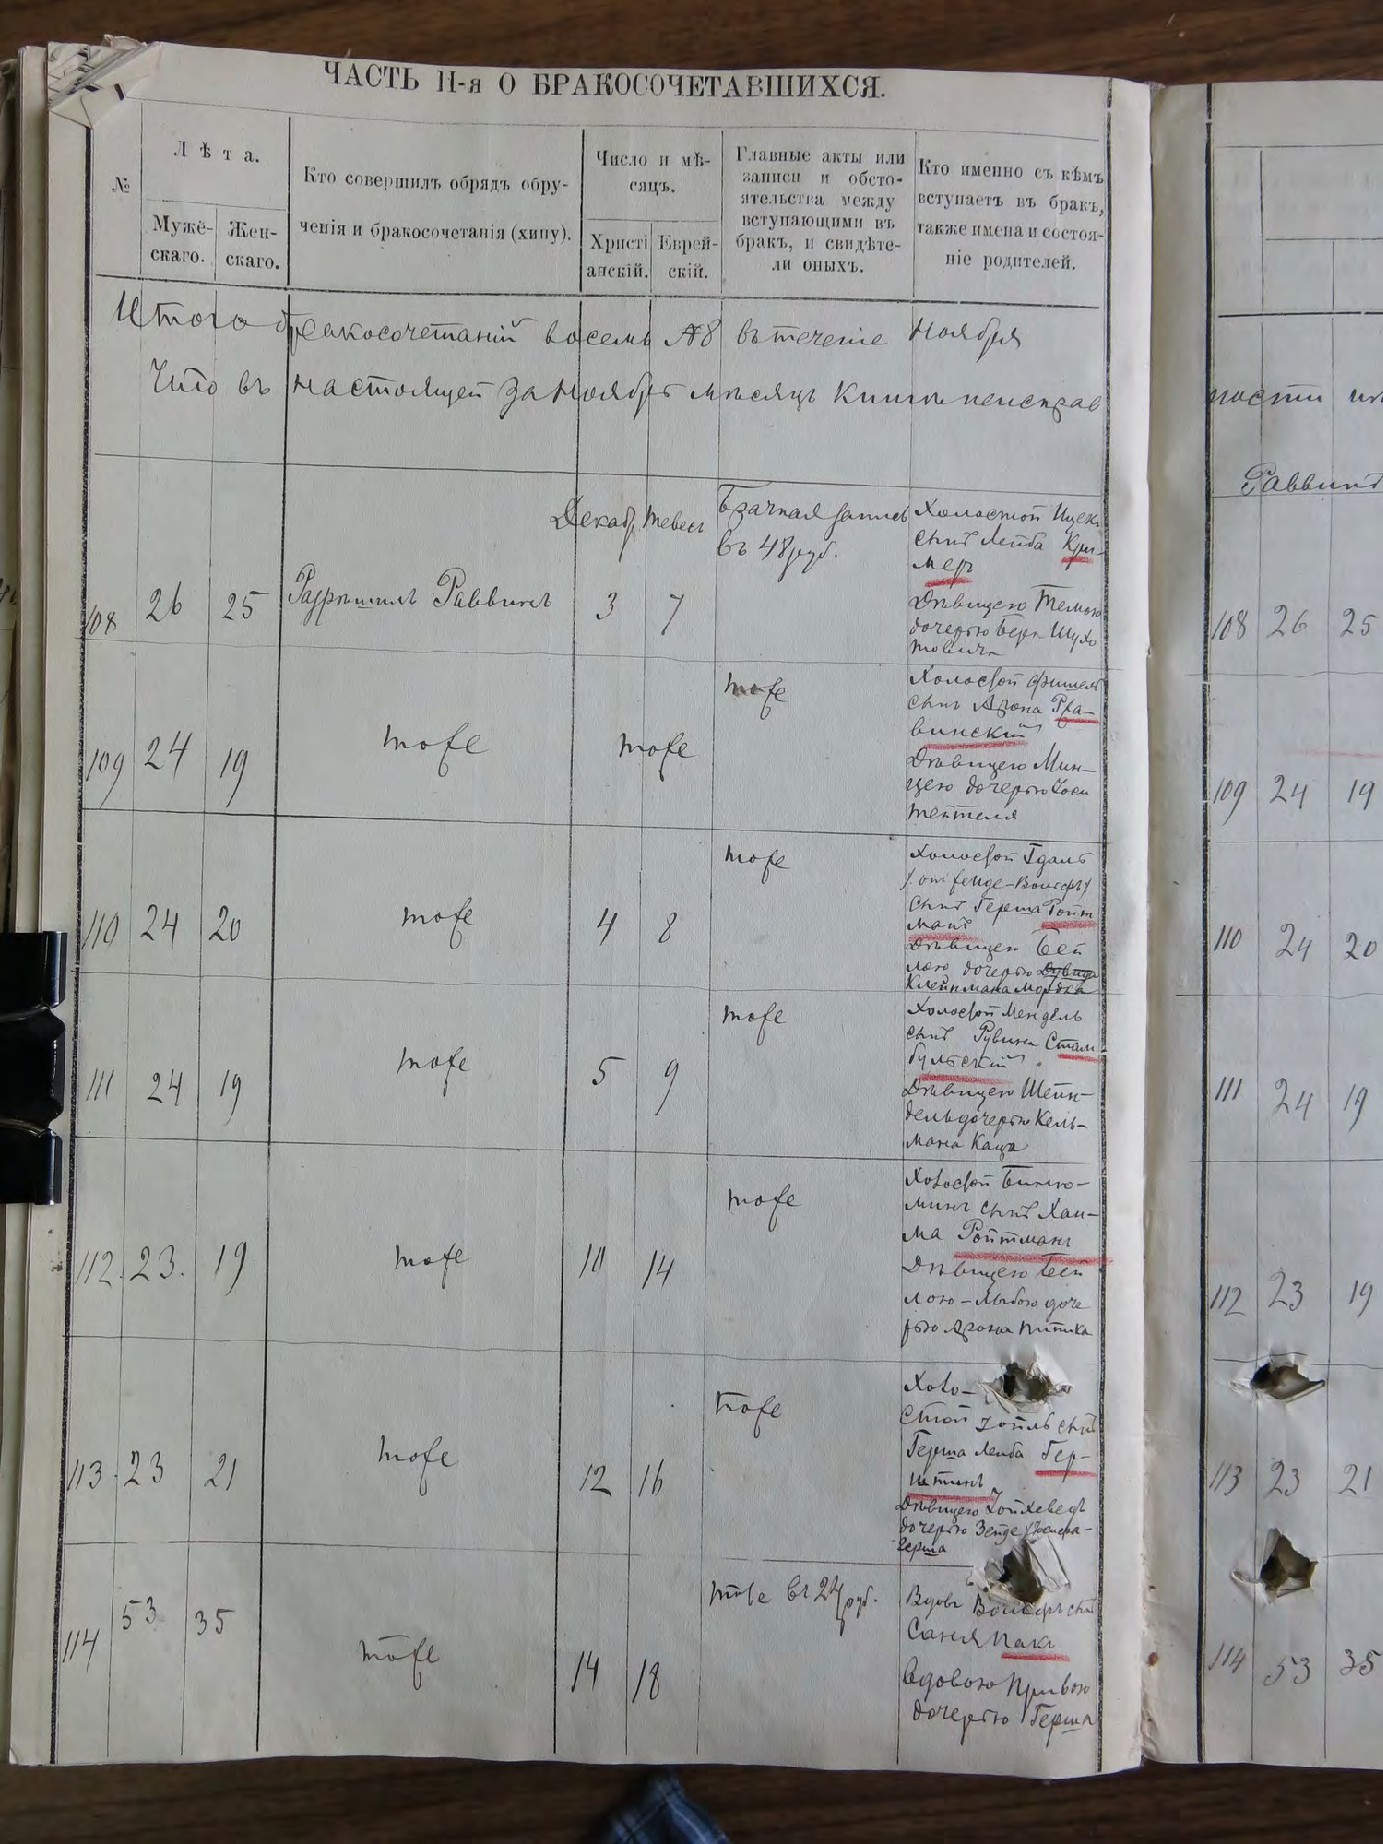 ЧАСТЬ II-я О БРАКОСОЧЕТАВШИХСЯ.
№
Лѣта.
Мужс-
скаго.
Жен-
скаго.
Кто совершилъ обрядъ обру-
ченія и бракосочетанія (хипу).
Число и мѣ-
сяцъ.
Христі
анскій.
Еврей-
скій.
Главные акты или
записи и обсто-
ятельства между
вступающими въ
бракъ, и свидѣте-
ли оныхъ.
Кто именно съ кѣмъ
вступаетъ въ бракъ,
также имена и состоя-
ніе родителей.
Итого бракосочетаній восемь №8 въ теченіе Ноября
Что въ настоящей за Ноябрь мѣсяцъ Книгѣ неисправ
ности
Раввинъ
108 26 25 Разрѣшилъ Раввинъ
Декабр Тевесъ
3 7
Брачная запись
въ 48 руб.
Холостой Ицекъ
сынъ Лейба Кри-
меръ
Дѣвицею Темою
дочерью Бера
109 24 19 тоже тоже тоже
Холостой Фишель
сынъ Арона Ра-
винскій
Дѣвицею Мин-
цею дочерью
110 24 20 тоже 4 8 тоже
Холостой Гдаль
сынъ Герша Ройт
манъ
Дѣвицею Бей
лею дочерью
Клейнмана Мордка
111 24 19 тоже 5 9 тоже
Холостой Мендель
сынъ Рувина Стам
бульскій
Дѣвицею Шейн-
дель дочерью Кель-
мана Каца
112. 23. 19 тоже 10 14 тоже
Холостой Биню-
минъ сынъ Хаи-
ма Ройтманъ
Дѣвицею Бей
лою - доче
рью Арона Питика
113. 23 21 тоже 12 16 тоже
Холо-
стой Іойль сынъ
Герша Лейба Гер-
штинъ
Дѣвицею Хойхеведъ
дочерью Зейде
Герша
114 53 35 тоже 14 18 тоже въ 24 руб.
Вдовъ сынъ
Саня Пака
Вдовою
дочерью Герша
108 26 25
109 24 19
110 24 20
111 24 19
112 23 19
113 23 21
114 53 35